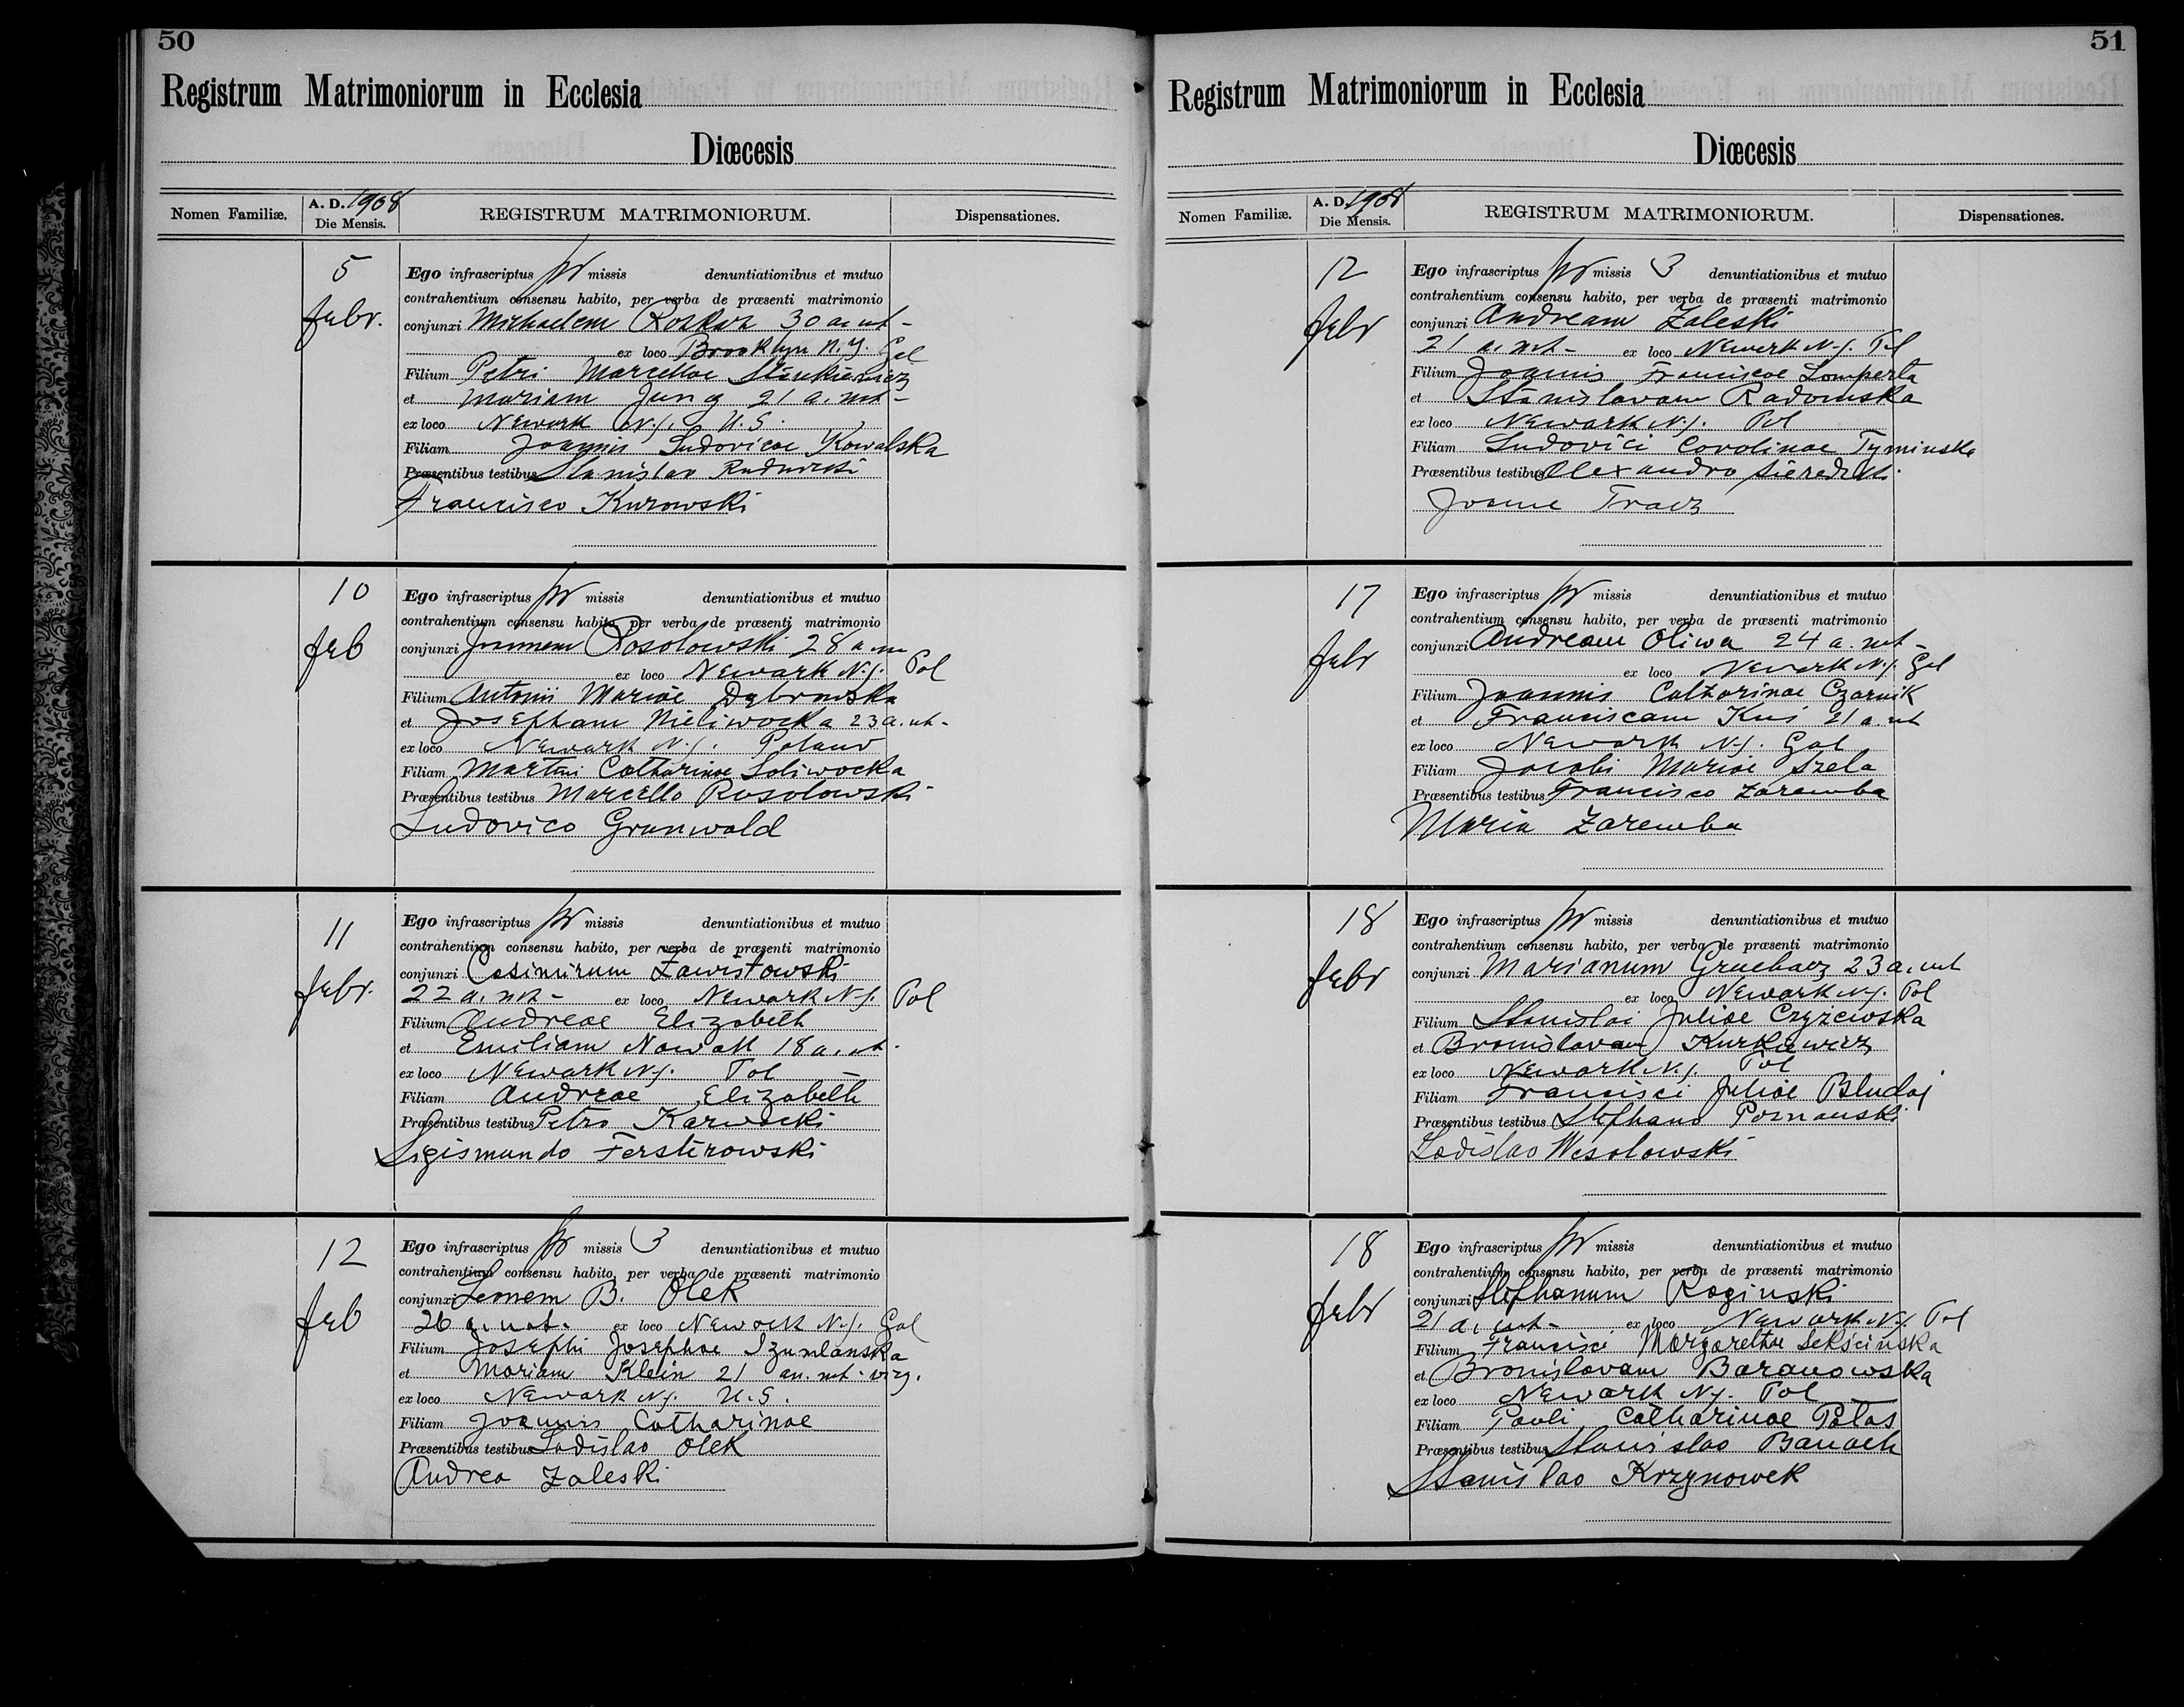 50
Registrum Matrimoniorum in Ecclesia
Diœcesis
Nomen Familiæ.
A. D. 1908
Die Mensis.
REGISTRUM MATRIMONIORUM.
Dispensationes.
5
febr.
Ego infrascriptus missis denuntiationibus et mutuo
contrahentium consensu habito, per verba de præsenti matrimonio
conjunxi Michaelem 30 a. nt -
ex loco Brooklyn N.Y. Gal
Filium Petri Marcellae
et Mariam Jung 21 a. nt -
ex loco Newark N.J. U.S.
Filiam Joannis Ludovicae Kowalska
Præsentibus testibus Stanislao
Francisco Kurowski
10
feb
Ego infrascriptus missis denuntiationibus et mutuo
contrahentium consensu habito, per verba de præsenti matrimonio
conjunxi Rosolowski 28 a.
ex loco Newark N.J. Pol
Filium Antonii Mariae Dąbrowska
et Josepham Nieliwocka 23 a. nt -
ex loco Newark N.J. Poland
Filiam Martini Catharinae Soliwocka
Præsentibus testibus Marcello Rosolowski
Ludovico Grunwald
11
febr.
Ego infrascriptus missis denuntiationibus et mutuo
contrahentium consensu habito, per verba de præsenti matrimonio
conjunxi Casimirum Zawistowski
22 a. nt - ex loco Newark N.J. Pol
Filium Andreae Elizabeth
et Emiliam Nowak 18 a. nt -
ex loco Newark N.J. Pol
Filiam Andreae Elizabeth
Præsentibus testibus Petro Karwacki
Sigismundo Fersterowski
12
feb
Ego infrascriptus missis 3 denuntiationibus et mutuo
contrahentium consensu habito, per verba de præsenti matrimonio
conjunxi B. Olek
26 a. nat. ex loco Newark N.J. Gal
Filium Josephi Josephae Szumlanska
et Mariam Klein 21 an. nt - virg.
ex loco Newark N.J. U.S.
Filiam Joannis Catharinae
Præsentibus testibus Ladislao Olek
Andrea Zaleski
51
Registrum Matrimoniorum in Ecclesia
Diœcesis
Nomen Familiæ.
A. D. 1908
Die Mensis.
REGISTRUM MATRIMONIORUM.
Dispensationes.
12
febr
Ego infrascriptus missis 3 denuntiationibus et mutuo
contrahentium consensu habito, per verba de præsenti matrimonio
conjunxi Andream Zaleski
21 a. nt - ex loco Newark N.J. Pol
Filium Joannis Franciscae Lomperta
et Stanislavam Radomska
ex loco Newark N.J. Pol
Filiam Ludovici Carolinae Tyminska
Præsentibus testibus Alexandro
Joanne Tracz
17
febr
Ego infrascriptus missis denuntiationibus et mutuo
contrahentium consensu habito, per verba de præsenti matrimonio
conjunxi Andream Oliwa 24 a. nt -
ex loco Newark N.J. Gal
Filium Joannis Catharinae Czarnik
et Franciscam Kuś 21 a. nt
ex loco Newark N.J. Gal
Filiam Jacobi Mariae Szela
Præsentibus testibus Francisco Zaremba
Maria Zaremba
18
febr
Ego infrascriptus missis denuntiationibus et mutuo
contrahentium consensu habito, per verba de præsenti matrimonio
conjunxi Marianum Gruchacz 23 a. nt
ex loco Newark N.J. Pol
Filium Stanislai Juliae Czyzewska
et Bronislavam Kurkiewicz
ex loco Newark N.J. Pol
Filiam Francisci Juliae Bludoj
Præsentibus testibus Stephano Poznanski
Ladislao Wesolowski
18
febr
Ego infrascriptus missis denuntiationibus et mutuo
contrahentium consensu habito, per verba de præsenti matrimonio
conjunxi Stephanum Roginski
21 a. nt - ex loco Newark N.J. Pol
Filium Francisci Margarethae Sekścinska
et Bronislavam Baranowska
ex loco Newark N.J. Pol
Filiam Pauli Catharinae Potas
Præsentibus testibus Stanislao Banach
Stanislao Krzynowek